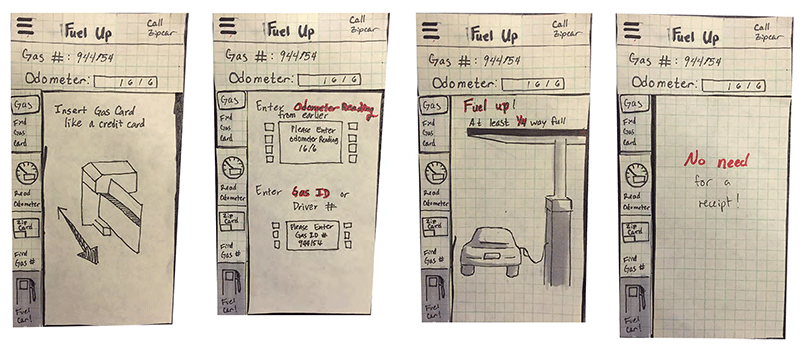 Fuel Up
Call
Zipcar
Gas #: 944154
Odometer: 1616
Gas
Find
Gas
Card
Read
Odometer
Zip
Card
Find
Gas #
Fuel
Car!
Insert Gas Card
like a credit card
Fuel Up
Call
Zipcar
Gas #: 944154
Odometer: 1616
Gas
Find
Gas
Card
Read
Odometer
Zip
Card
Find
Gas #
Fuel
Car!
Enter Odometer Reading
from earlier
Please Enter
odometer Reading
1616
Enter Gas ID or
Driver #
Please Enter
Gas ID #
944154
Fuel Up
Call
Zipcar
Gas #: 944154
Odometer: 1616
Gas
Find
Gas
Card
Read
Odometer
Zip
Card
Find
Gas #
Fuel
Car!
Fuel up!
At least 1/4 way full
Fuel Up
Call
Zipcar
Gas #: 944154
Odometer: 1616
Gas
Find
Gas
Card
Read
Odometer
Zip
Card
Find
Gas #
Fuel
Car!
No need
for a
receipt!